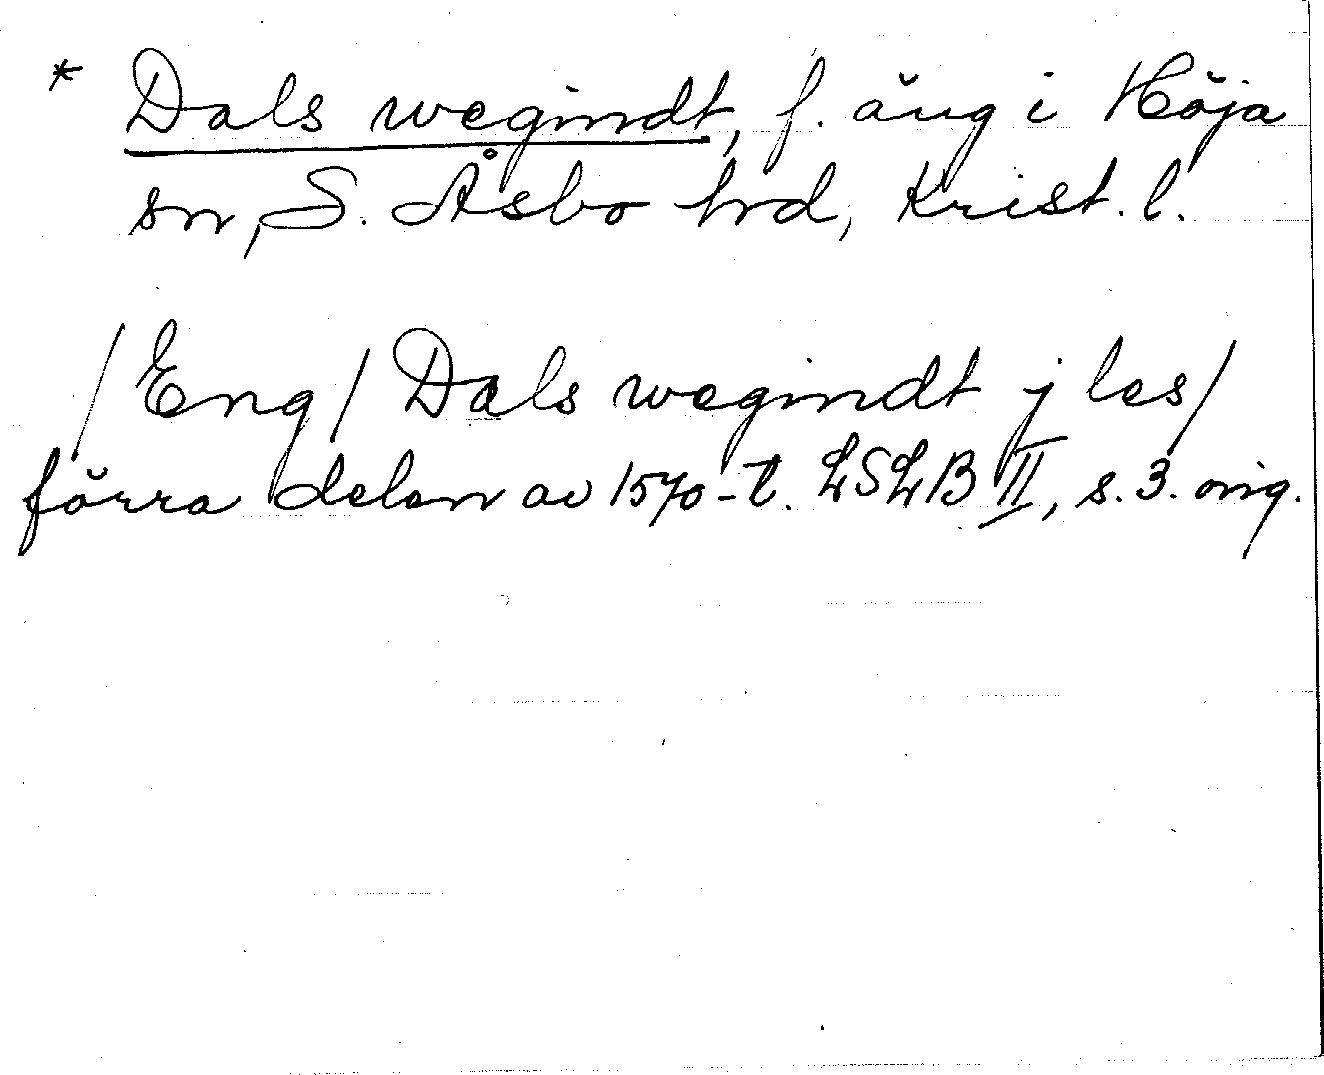 * Dals wegindt, f. äng i Höja
sn, S. Åsbo hrd, Krist. l.
/Eng/ Dals wegindt j les/
förra delen av 1570-t. LSLB II, s. 3. orig.